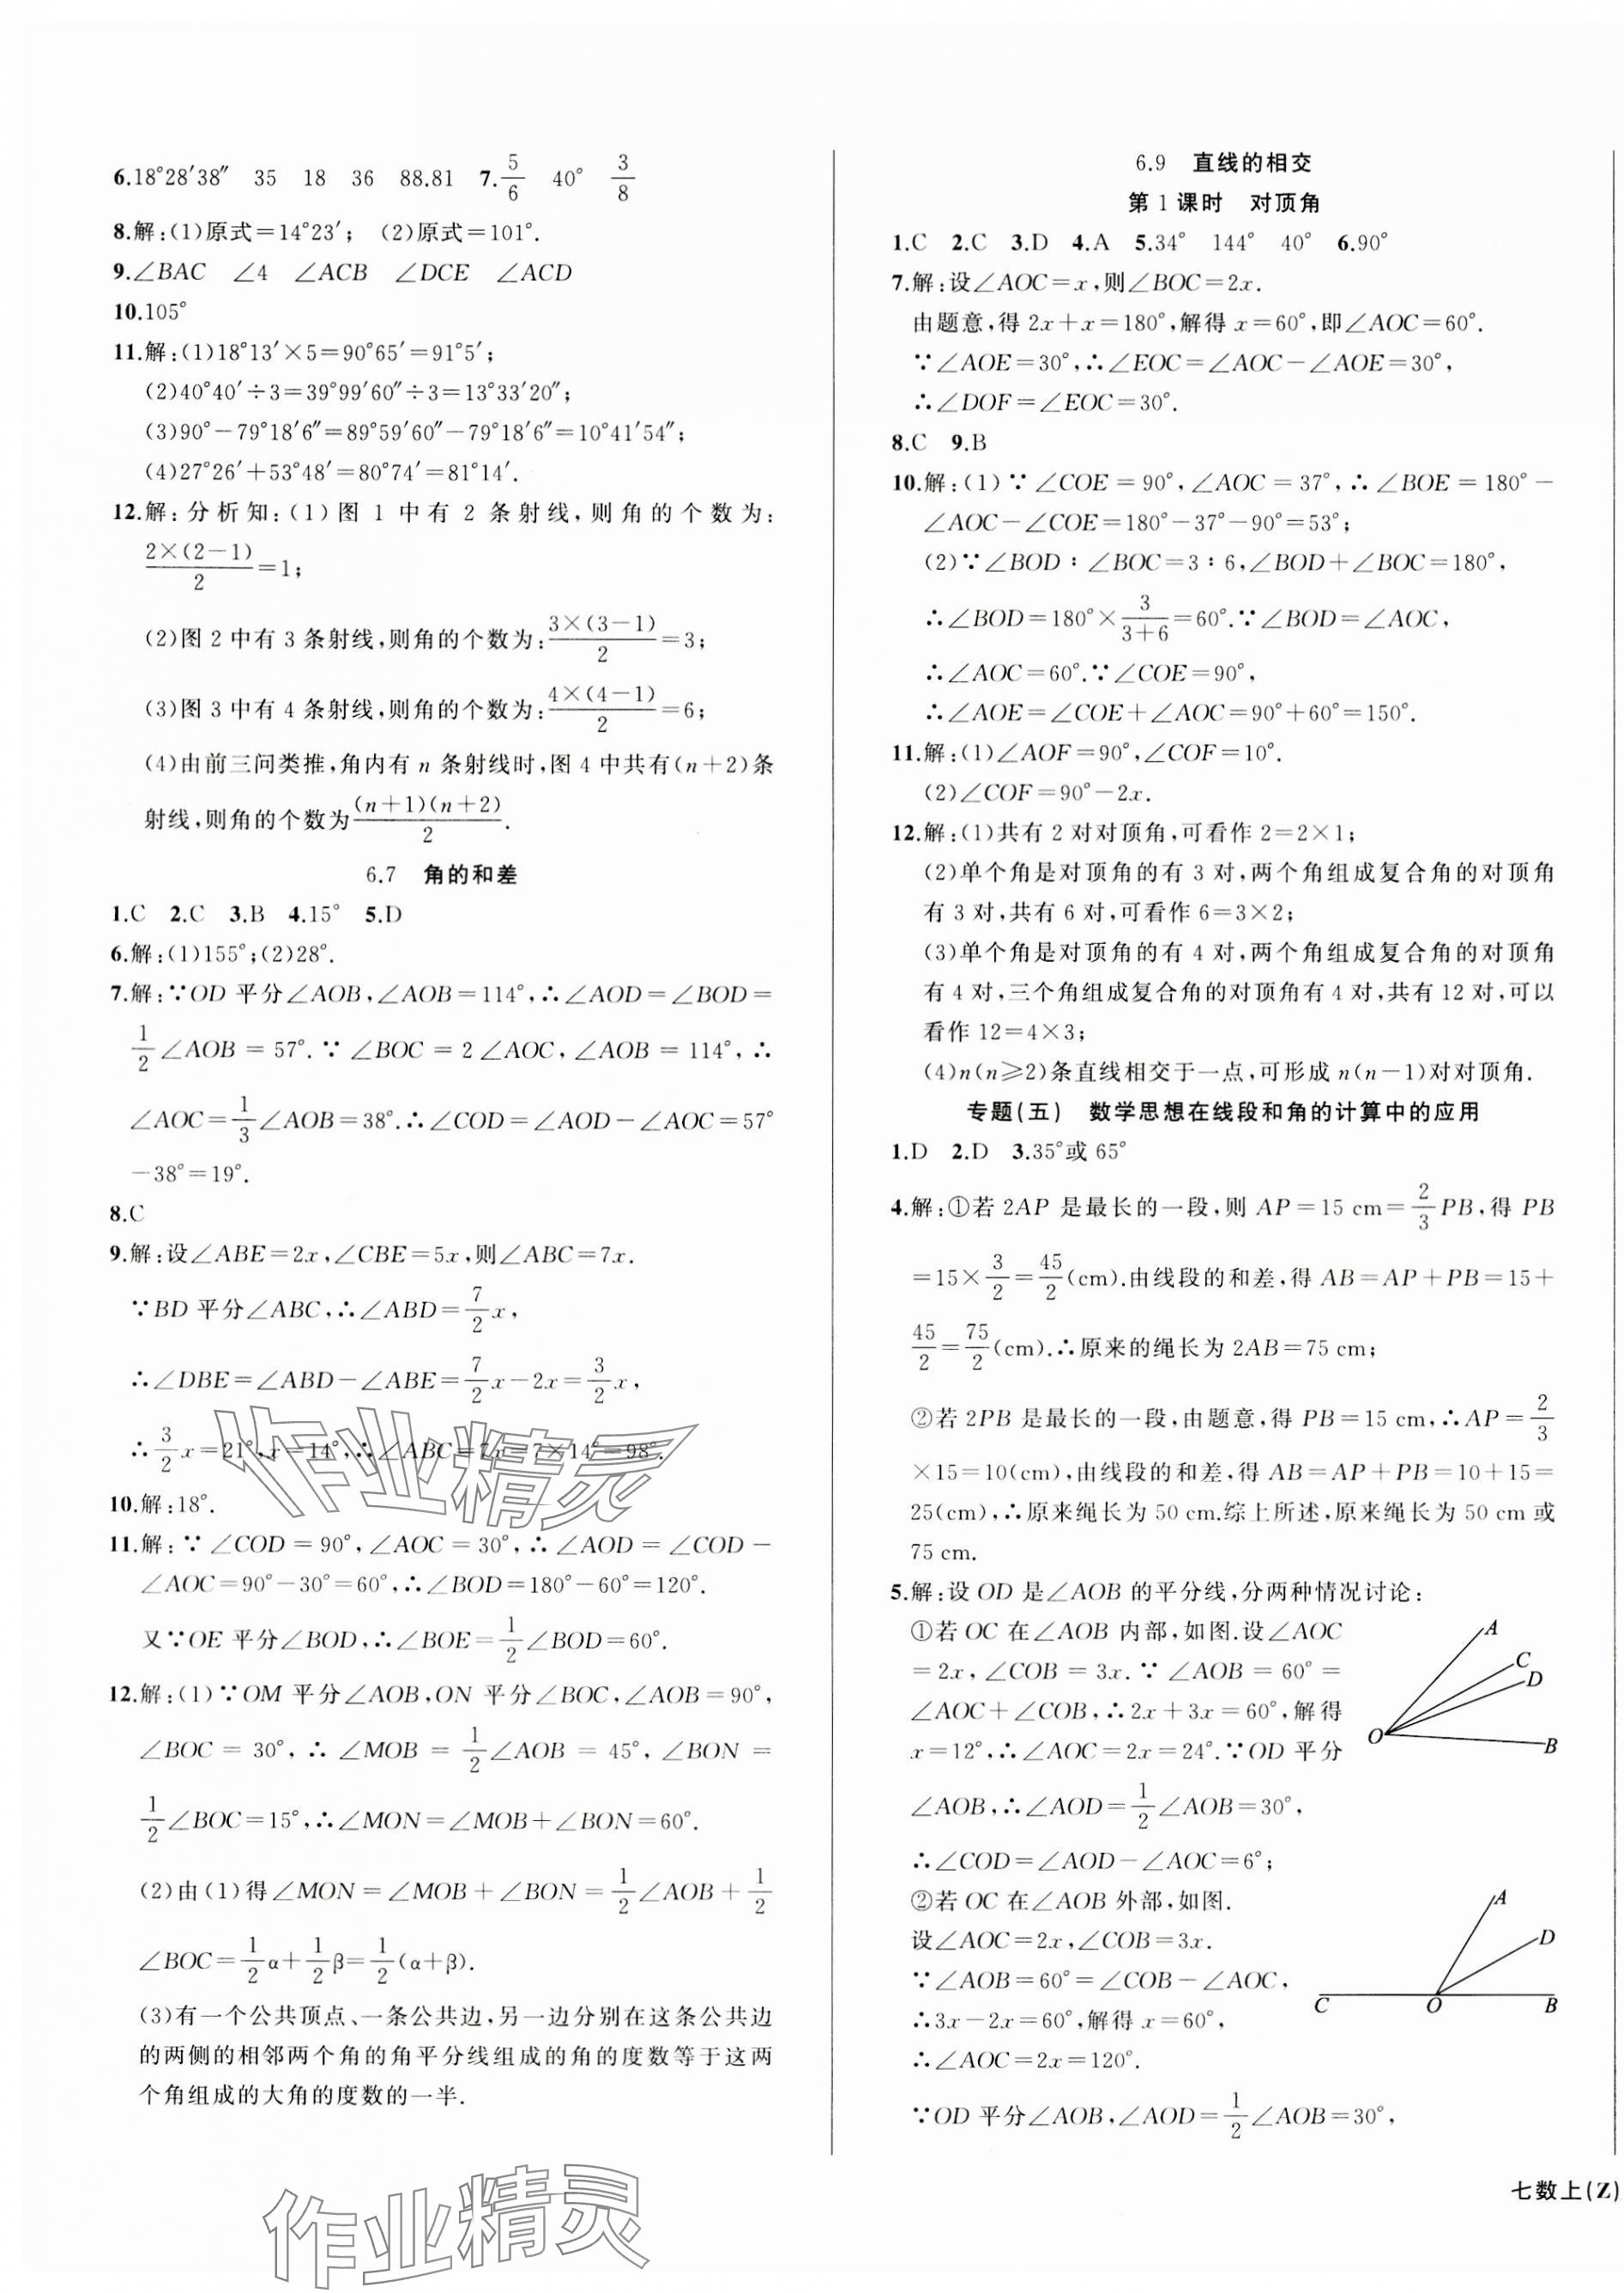 6.18°28′38″ 35 18 36 88.81 7.5/6 40° 3/8
8.解:(1)原式=14°23′; (2)原式=101°.
9.∠BAC ∠4 ∠ACB ∠DCE ∠ACD
10.105°
11.解:(1)18°13′×5=90°65′=91°5′;
(2)40°40′÷3=39°99′60″÷3=13°33′20″;
(3)90°-79°18′6″=89°59′60″-79°18′6″=10°41′54″;
(4)27°26′+53°48′=80°74′=81°14′.
12.解:分析知:(1)图1中有2条射线,则角的个数为:
2×(2-1)/2=1;
(2)图2中有3条射线,则角的个数为:3×(3-1)/2=3;
(3)图3中有4条射线,则角的个数为:4×(4-1)/2=6;
(4)由前三问类推,角内有n条射线时,图4中共有(n+2)条
射线,则角的个数为(n+1)(n+2)/2.
6.7 角的和差
1.C 2.C 3.B 4.15° 5.D
6.解:(1)155°;(2)28°.
7.解:∵OD平分∠AOB,∠AOB=114°,∴∠AOD=∠BOD=
1/2∠AOB=57°.∵∠BOC=2∠AOC,∠AOB=114°,∴
∠AOC=1/3∠AOB=38°.∴∠COD=∠AOD-∠AOC=57°
-38°=19°.
8.C
9.解:设∠ABE=2x,∠CBE=5x,则∠ABC=7x.
∵BD平分∠ABC,∴∠ABD=7/2x,
∴∠DBE=∠ABD-∠ABE=7/2x-2x=3/2x,
∴3/2x=21°,x=14°,∴∠ABC=7x=7×14°=98°.
10.解:18°.
11.解:∵∠COD=90°,∠AOC=30°,∴∠AOD=∠COD-
∠AOC=90°-30°=60°,∴∠BOD=180°-60°=120°.
又∵OE平分∠BOD,∴∠BOE=1/2∠BOD=60°.
12.解:(1)∵OM平分∠AOB,ON平分∠BOC,∠AOB=90°,
∠BOC=30°,∴∠MOB=1/2∠AOB=45°,∠BON=
1/2∠BOC=15°,∴∠MON=∠MOB+∠BON=60°.
(2)由(1)得∠MON=∠MOB+∠BON=1/2∠AOB+1/2
∠BOC=1/2α+1/2β=1/2(α+β).
(3)有一个公共顶点、一条公共边,另一边分别在这条公共边
的两侧的相邻两个角的角平分线组成的角的度数等于这两
个角组成的大角的度数的一半.
作业精灵
作业精灵
6.9 直线的相交
第1课时 对顶角
1.C 2.C 3.D 4.A 5.34° 144° 40° 6.90°
7.解:设∠AOC=x,则∠BOC=2x.
由题意,得2x+x=180°,解得x=60°,即∠AOC=60°.
∵∠AOE=30°,∴∠EOC=∠AOC-∠AOE=30°,
∴∠DOF=∠EOC=30°.
8.C 9.B
10.解:(1)∵∠COE=90°,∠AOC=37°,∴∠BOE=180°-
∠AOC-∠COE=180°-37°-90°=53°;
(2)∵∠BOD∶∠BOC=3∶6,∠BOD+∠BOC=180°,
∴∠BOD=180°×3/(3+6)=60°.∵∠BOD=∠AOC,
∴∠AOC=60°.∵∠COE=90°,
∴∠AOE=∠COE+∠AOC=90°+60°=150°.
11.解:(1)∠AOF=90°,∠COF=10°.
(2)∠COF=90°-2x.
12.解:(1)共有2对对顶角,可看作2=2×1;
(2)单个角是对顶角的有3对,两个角组成复合角的对顶角
有3对,共有6对,可看作6=3×2;
(3)单个角是对顶角的有4对,两个角组成复合角的对顶角
有4对,三个角组成复合角的对顶角有4对,共有12对,可以
看作12=4×3;
(4)n(n⩾2)条直线相交于一点,可形成n(n-1)对对顶角.
专题(五) 数学思想在线段和角的计算中的应用
1.D 2.D 3.35°或65°
4.解:①若2AP是最长的一段,则AP=15 cm=2/3PB,得PB
=15×3/2=45/2(cm).由线段的和差,得AB=AP+PB=15+
45/2=75/2(cm).∴原来的绳长为2AB=75 cm;
②若2PB是最长的一段,由题意,得PB=15 cm,∴AP=2/3
×15=10(cm),由线段的和差,得AB=AP+PB=10+15=
25(cm),∴原来绳长为50 cm.综上所述,原来绳长为50 cm或
75 cm.
5.解:设OD是∠AOB的平分线,分两种情况讨论:
①若OC在∠AOB内部,如图.设∠AOC
=2x,∠COB=3x.∵∠AOB=60°=
∠AOC+∠COB,∴2x+3x=60°,解得
x=12°,∴∠AOC=2x=24°.∵OD平分
∠AOB,∴∠AOD=1/2∠AOB=30°,
∴∠COD=∠AOD-∠AOC=6°;
A
C
D
O
B
②若OC在∠AOB外部,如图.
设∠AOC=2x,∠COB=3x.
∵∠AOB=60°=∠COB-∠AOC,
∴3x-2x=60°,解得x=60°,
∴∠AOC=2x=120°.
∵OD平分∠AOB,∠AOD=1/2∠AOB=30°,
A
D
C O B
七数上(Z)